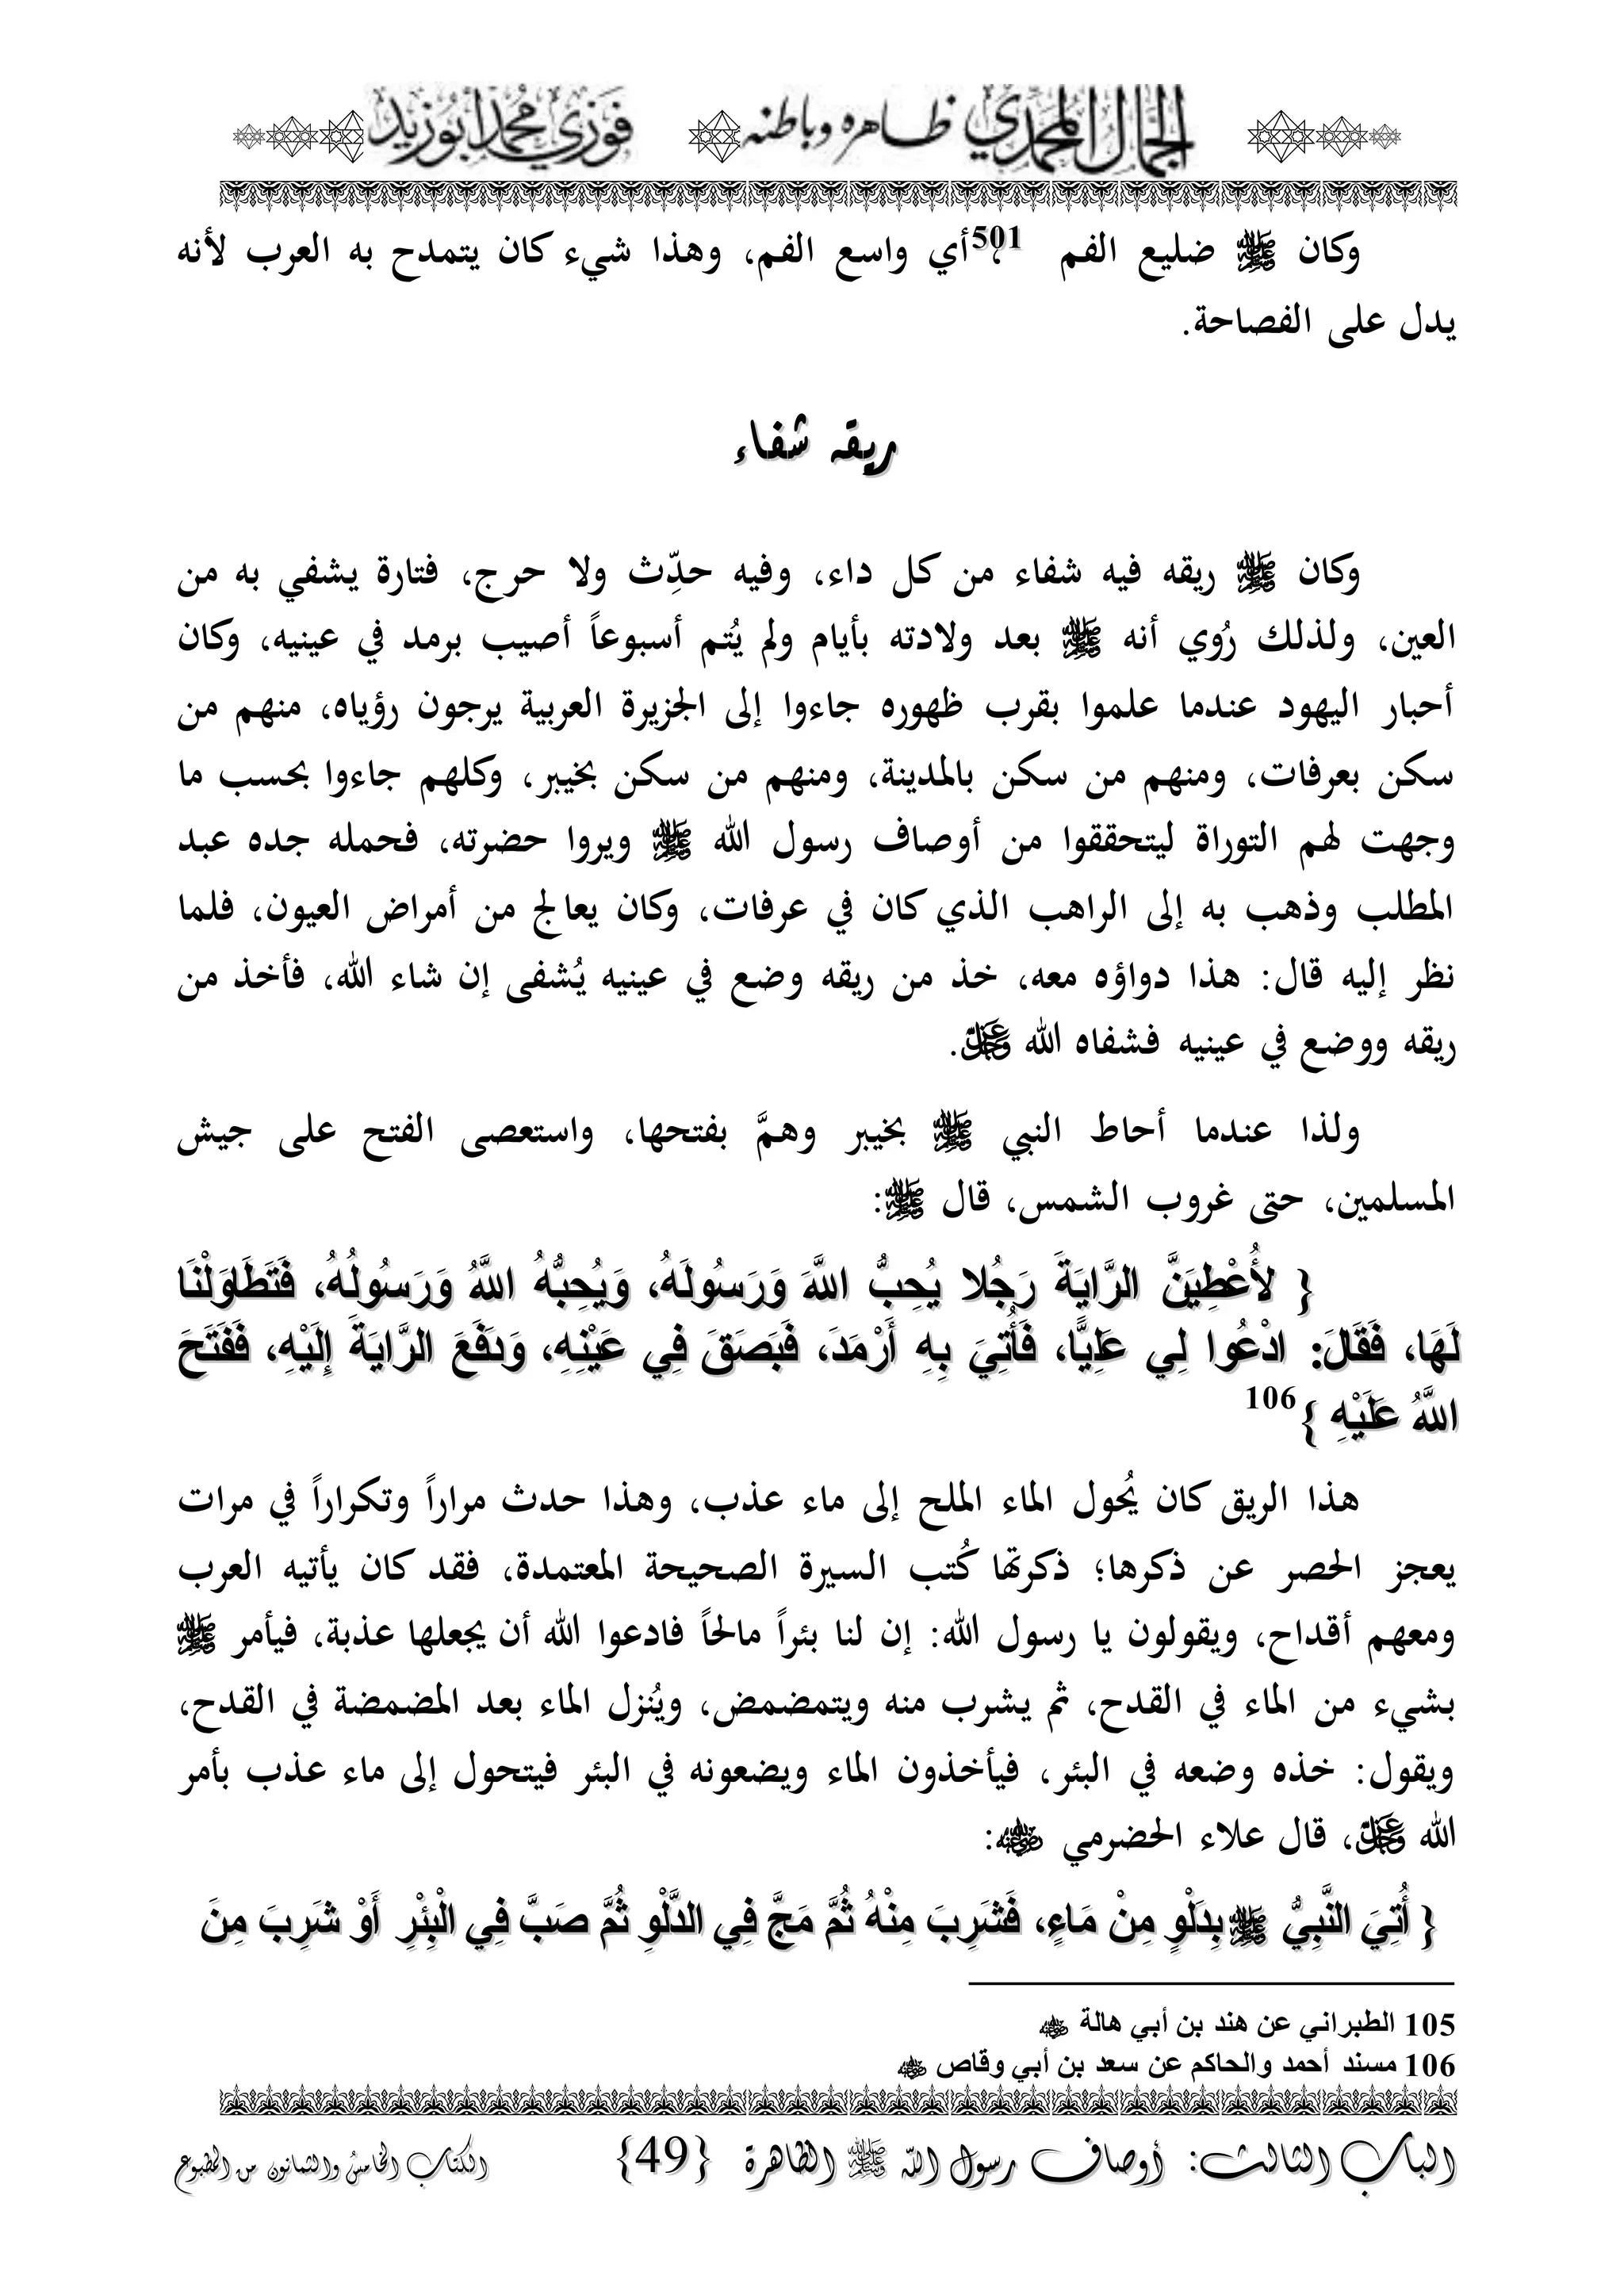 الجمال المحمدي ظاهره وباطنه فوزي محمد أبوزيد
وكان ﷺ ضليع الفم 501، أي واسع الفم، وهذا شيء كان يتمدح به العرب لأنه
يدل على الفصاحة.
ريقه شفاء
وكان ﷺ ريقه فيه شفاء من كل داء، وفيه حدِّث ولا حرج، فتارة يشفي به من
العين، ولذلك رُوي أنه ﷺ بعد ولادته بأيام ولم يُتم أسبوعاً أصيب برمد في عينيه، وكان
أحبار اليهود عندما علموا بقرب ظهوره جاءوا إلى الجزيرة العربية يرجون رؤياه، منهم من
سكن بعرفات، ومنهم من سكن بالمدينة، ومنهم من سكن بخيبر، وكلهم جاءوا بحسب ما
وجهت لهم التوراة ليتحققوا من أوصاف رسول الله ﷺ ويروا حضرته، فحمله جده عبد
المطلب وذهب به إلى الراهب الذي كان في عرفات، وكان يعالج من أمراض العيون، فلما
نظر إليه قال: هذا دواؤه معه، خذ من ريقه وضع في عينيه يُشفى إن شاء الله، فأخذ من
ريقه ووضع في عينيه فشفاه الله عز وجل.
ولذا عندما أحاط النبي ﷺ بخيبر وهمَّ بفتحها، واستعصى الفتح على جيش
المسلمين، حتى غروب الشمس، قال ﷺ:
{ لأُعْطِيَنَّ الرَّايَةَ رَجُلا يُحِبُّ اللَّهَ وَرَسُولَهُ، وَيُحِبُّهُ اللَّهُ وَرَسُولُهُ، فَتَطَاوَلْنَا
لَهَا، فَقَالَ: ادْعُوا لِي عَلِيًّا، فَأُتِيَ بِهِ أَرْمَدَ، فَبَصَقَ فِي عَيْنِهِ، وَدَفَعَ الرَّايَةَ إِلَيْهِ، فَفَتَحَ
اللَّهُ عَلَيْهِ }106
هذا الريق كان يُحول الماء الملح إلى ماء عذب، وهذا حدث مراراً وتكراراً في مرات
يعجز الحصر عن ذكرها؛ ذكرتها كُتب السيرة الصحيحة المعتمدة، فقد كان يأتيه العرب
ومعهم أقداح، ويقولون يا رسول الله: إن لنا بئراً مالحاً فادعوا الله أن يجعلها عذبة، فيأمر ﷺ
بشيء من الماء في القدح، ثم يشرب منه ويتمضمض، ويُنزل الماء بعد المضمضة في القدح،
ويقول: خذه وضعه في البئر، فيأخذون الماء ويضعونه في البئر فيتحول إلى ماء عذب بأمر
الله عز وجل، قال علاء الحضرمي رضي الله عنه:
{ أُتِيَ النَّبِيُّ ﷺ بِدَلْوٍ مِنْ مَاءٍ، فَشَرِبَ مِنْهُ ثُمَّ مَجَّ فِي الدَّلْوِ ثُمَّ صَبَّ فِي الْبِئْرِ أَوْ شَرِبَ مِنَ
105 الطبراني عن هند بن أبي هالة رضي الله عنه
106 مسند أحمد والحاكم عن سعد بن أبي وقاص رضي الله عنه
الباب الثالث: أوصاف رسول الله ﷺ الظاهرة {49} الكتاب الخامس والثمانون من المطبوع